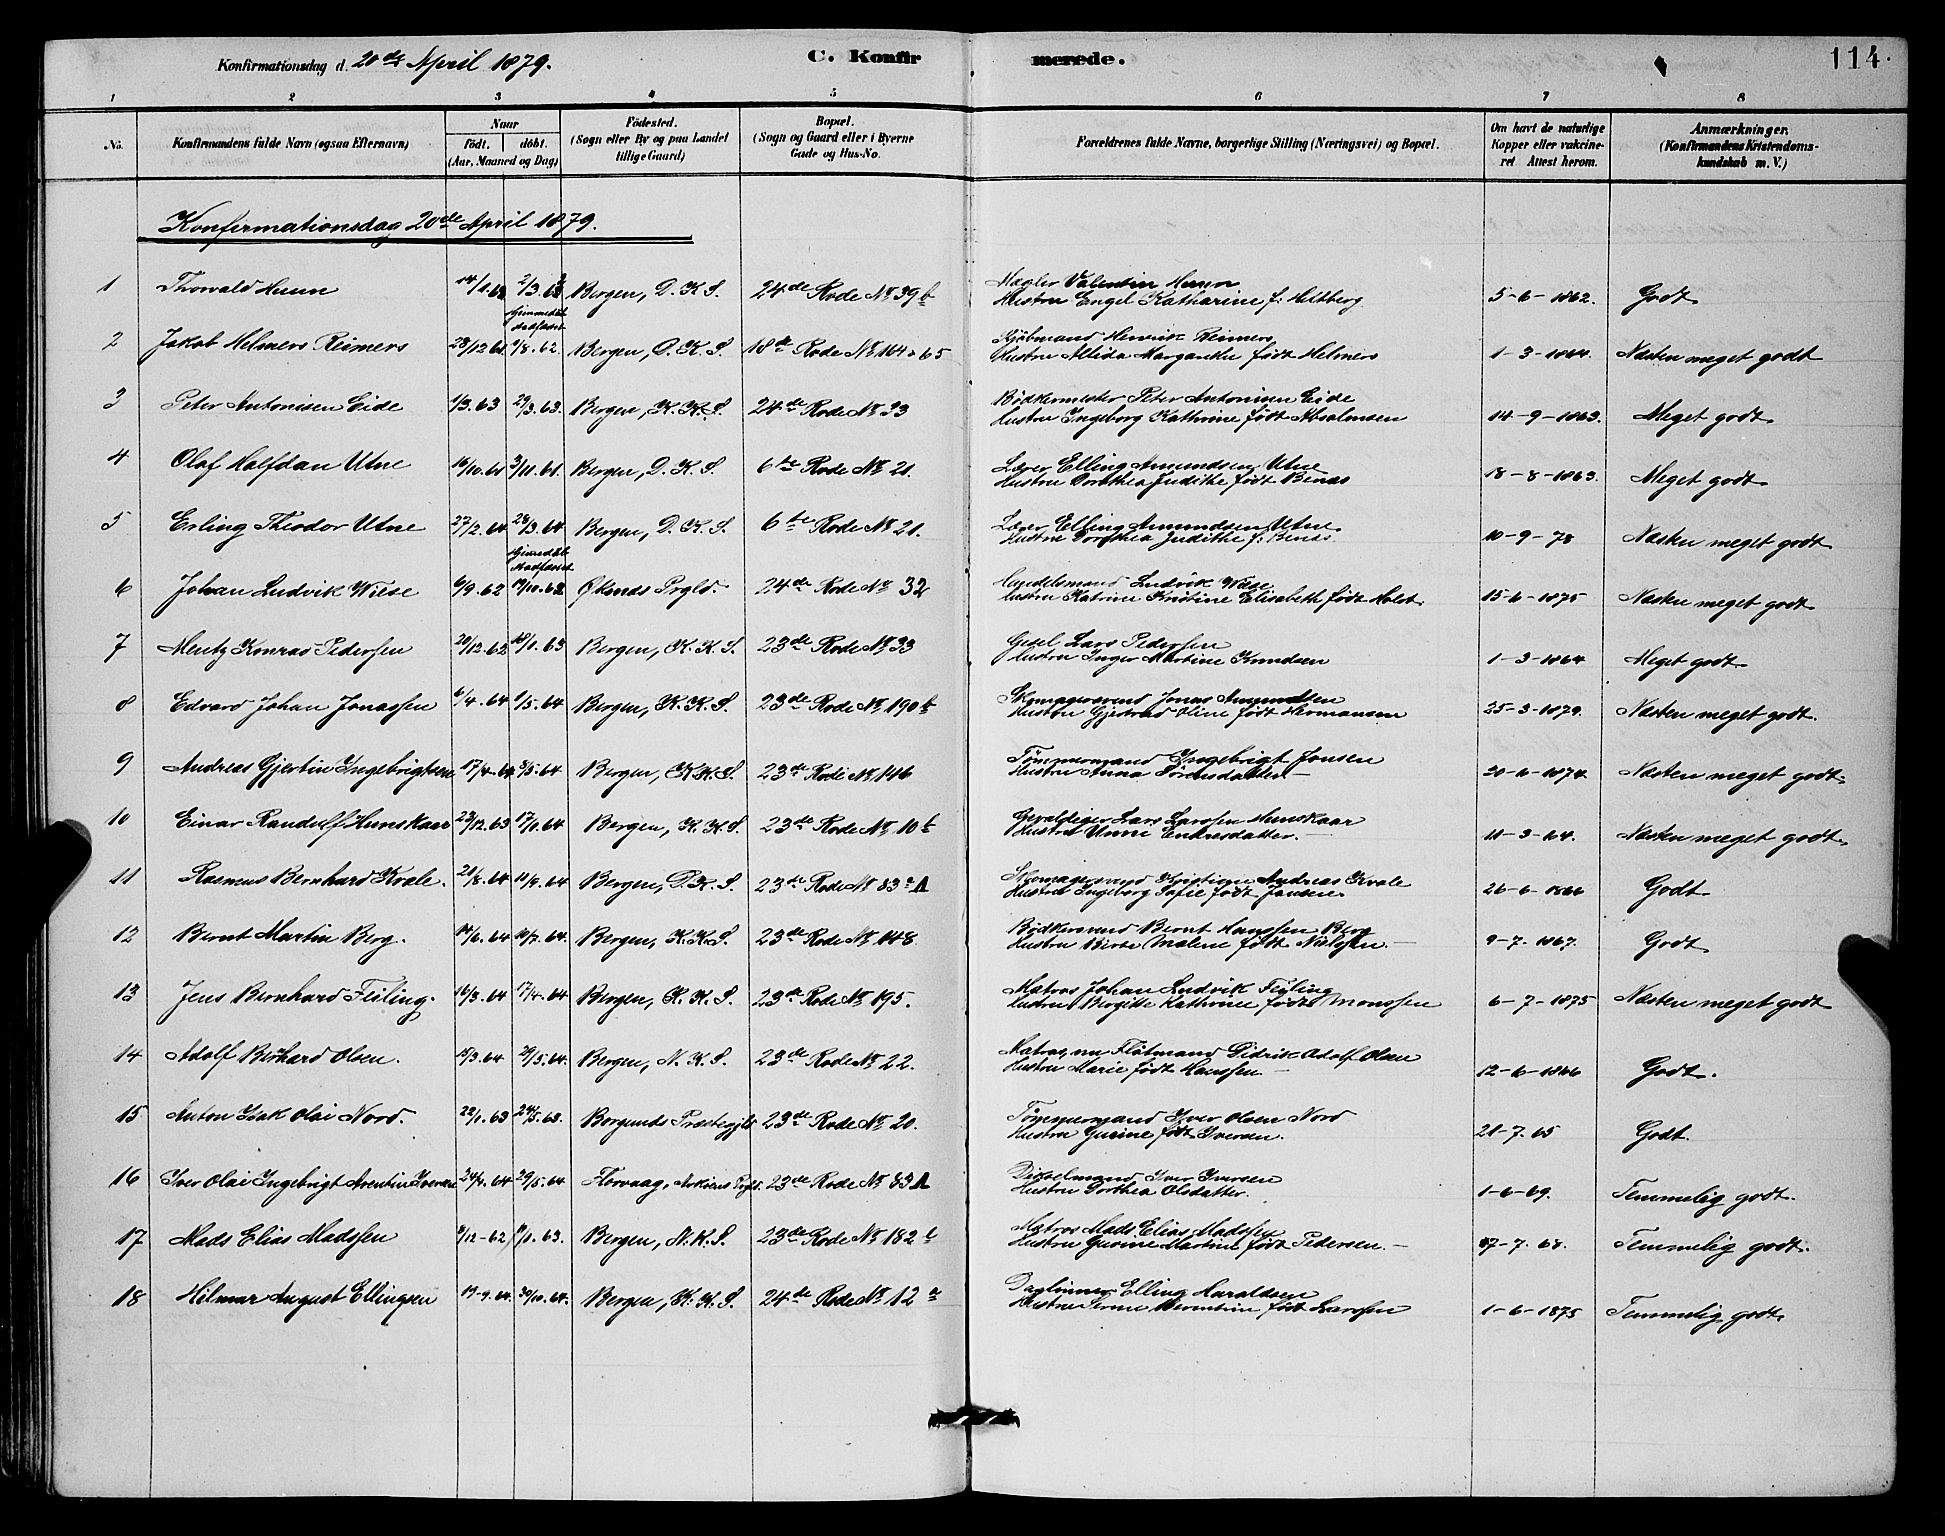 Konfirmationsdag d. 20de April 1879. C. Konfirmerede. 114.
1 2 3 4 5 6 7 8
No. Konfirmandens fulde Navn (ogsaa Efternavn) Naar født. døbt. (Aar, Maaned og Dag) Fødested. (Sogn eller By og paa Landet tillige Gaard) Bopæl. (Sogn og Gaard eller i Byerne Gade og Hus-No. Forældrenes fulde Navne, borgerlige Stilling (Næringsvei) og Bopæl. Om havt de naturlige Kopper eller vakcineret Attest herom. Anmærkninger. (Konfirmandens Kristendomskundskab m. V.)
Konfirmationsdag 20de April 1879.
1 Thorvald 14/1.62 2/3.62 Bergen, D. K. S. 24de Rode No 39b Mægler Valentin
Hustru Engel Katharine f: Heltberg 5-6-1862. Godt
Hjemmedøbt Stadfæstet
2 Jakob Helmers Reimers 23/12 61 /8.62. Bergen, D. K. S. 18de Rode No 164 o 65 Kjøbmand Henrik Reimers
Hustru Alida Margarethe født Helmers 1-3-1864. Næsten meget godt
3 Peter Antonisen Eide 1/3.63 29/3.63. Bergen, K. K. S. 24de Rode No 33 Bødkermester Peter Antonisen Eide
Hustru Ingeborg Kathrine født Absalonsen 14-9-1863. Meget godt
4 Olaf Halfdan Utne 16/10.61 3/11.61. Bergen, D. K. S. 6te Rode No 21. Lærer Elling Amundsen Utne
Hustru Dorothea Judithe født Benas 18-8-1863. Meget godt
5 Erling Theodor Utne 27/2.64 28/3.64 Bergen, D. K. S. 6te Rode No 21. Lærer Elling Amundsen Utne
Hustru Dorothea Judithe f. Benas 10-9-78 Næsten meget godt
Hjemmedøbt Stadfæstet
6 Johan Ludvik Wiese 6/9.62 19/10.62 Prgld. 24de Rode No 32 Handelsmand Ludvik Wiese
Hustru Katrine Kristine Elisabeth født Holst. 15-6-1875 Næsten meget godt
7 Mentz Konrad Pedersen 20/12.62 18/1.63 Bergen, K. K. S. 23de Rode No 33 Lars Pedersen
Hustru Inger Martine Knudsen 1-3-1864 Meget godt
8 Edvard Johan Jonassen 6/4.64 1/5.64 Bergen, K. K. S. 23de Rode No 190b Skomagersvend Jonas Amundsen
Hustru Gjertrud Oline født Hermansen 25-3-1879. Næsten meget godt.
9 Andreas Gjertin Ingebrigtsen 17/4.64 8/5.64 Bergen, K. K. S. 23de Rode No 146 Tømmermand Ingebrigt Jonsen
Hustru Anna Sørensdatter 20-6-1874 Næsten meget godt.
10 Einar Randulf Hunskaar 23/12.63 17/1.64 Bergen, K. K. S. 23de Rode No 10b Gevaldiger Lars Larssen Hunskaar
Hustru Unni Endresdatter. 11-3-64. Næsten meget godt.
11 Rasmus Bernhard Kvale. 21/8.64 11/9.64 Bergen, D. K. S. 23de Rode No 83a A Skomagersvend Kristian Andreas Kvale
Hustru Ingeborg Sofie født Jansen 26-6-1866 Godt
12 Bernt Martin Berg. 14/6.64 10/7.64. Bergen, K. K. S. 23de Rode No 148 Bødkersvend Bernt Hanssen Berg
Hustru Birte Malene født Nielssen. 9-7-1867. Godt
13 Jens Bernhard Feiling. 16/3.64 17/4.64 Bergen, K. K. S. 23de Rode No 195. Matros Johan Ludvik Feiling
Hustru Bergitte Kathrine født Monssen 6-7-1875 Næsten meget godt
14 Adolf Berhard Olsen. 15/3.64 29/5.64. Bergen, N. K. S. 23de Rode No 22. Matros, nu Fløtmand Didrik Adolf Olsen
Hustru Marie født Hanssen 12-6-1866 Godt.
15 Anton Isak Olai Nord. 22/1.63 24/5.63. Borgunds Præstegjld 23de Rode No 20. Tømmermand Iver Olsen Nord
Hustru Gurine født Iversen. 21-7.65 Godt.
16 Iver Olai Ingebrigt Arentin Iversen 24/4.64 29/5.64 Florvaag, Askøens Prgld. 23de Rode No 83 A Iver Iversen
Hustru Dorthea Olsdatter. 1-6-69. Temmelig godt.
17 Mads Elias Madssen /12-62 /1.63. Bergen, N. K. S. 23de Rode No 182b Matros Mads Elias Madssen
Hustru Gurine Martine født Pedersen. 7-7.68. Temmelig godt.
18 Hilmar August Ellingsen 19-9.64. 30/10.64. Bergen, K. K. S. 24de Rode No 12a Daglønner Elling Haraldsen
Hustru Berentine født Larssen 1-6-1875 Temmelig godt